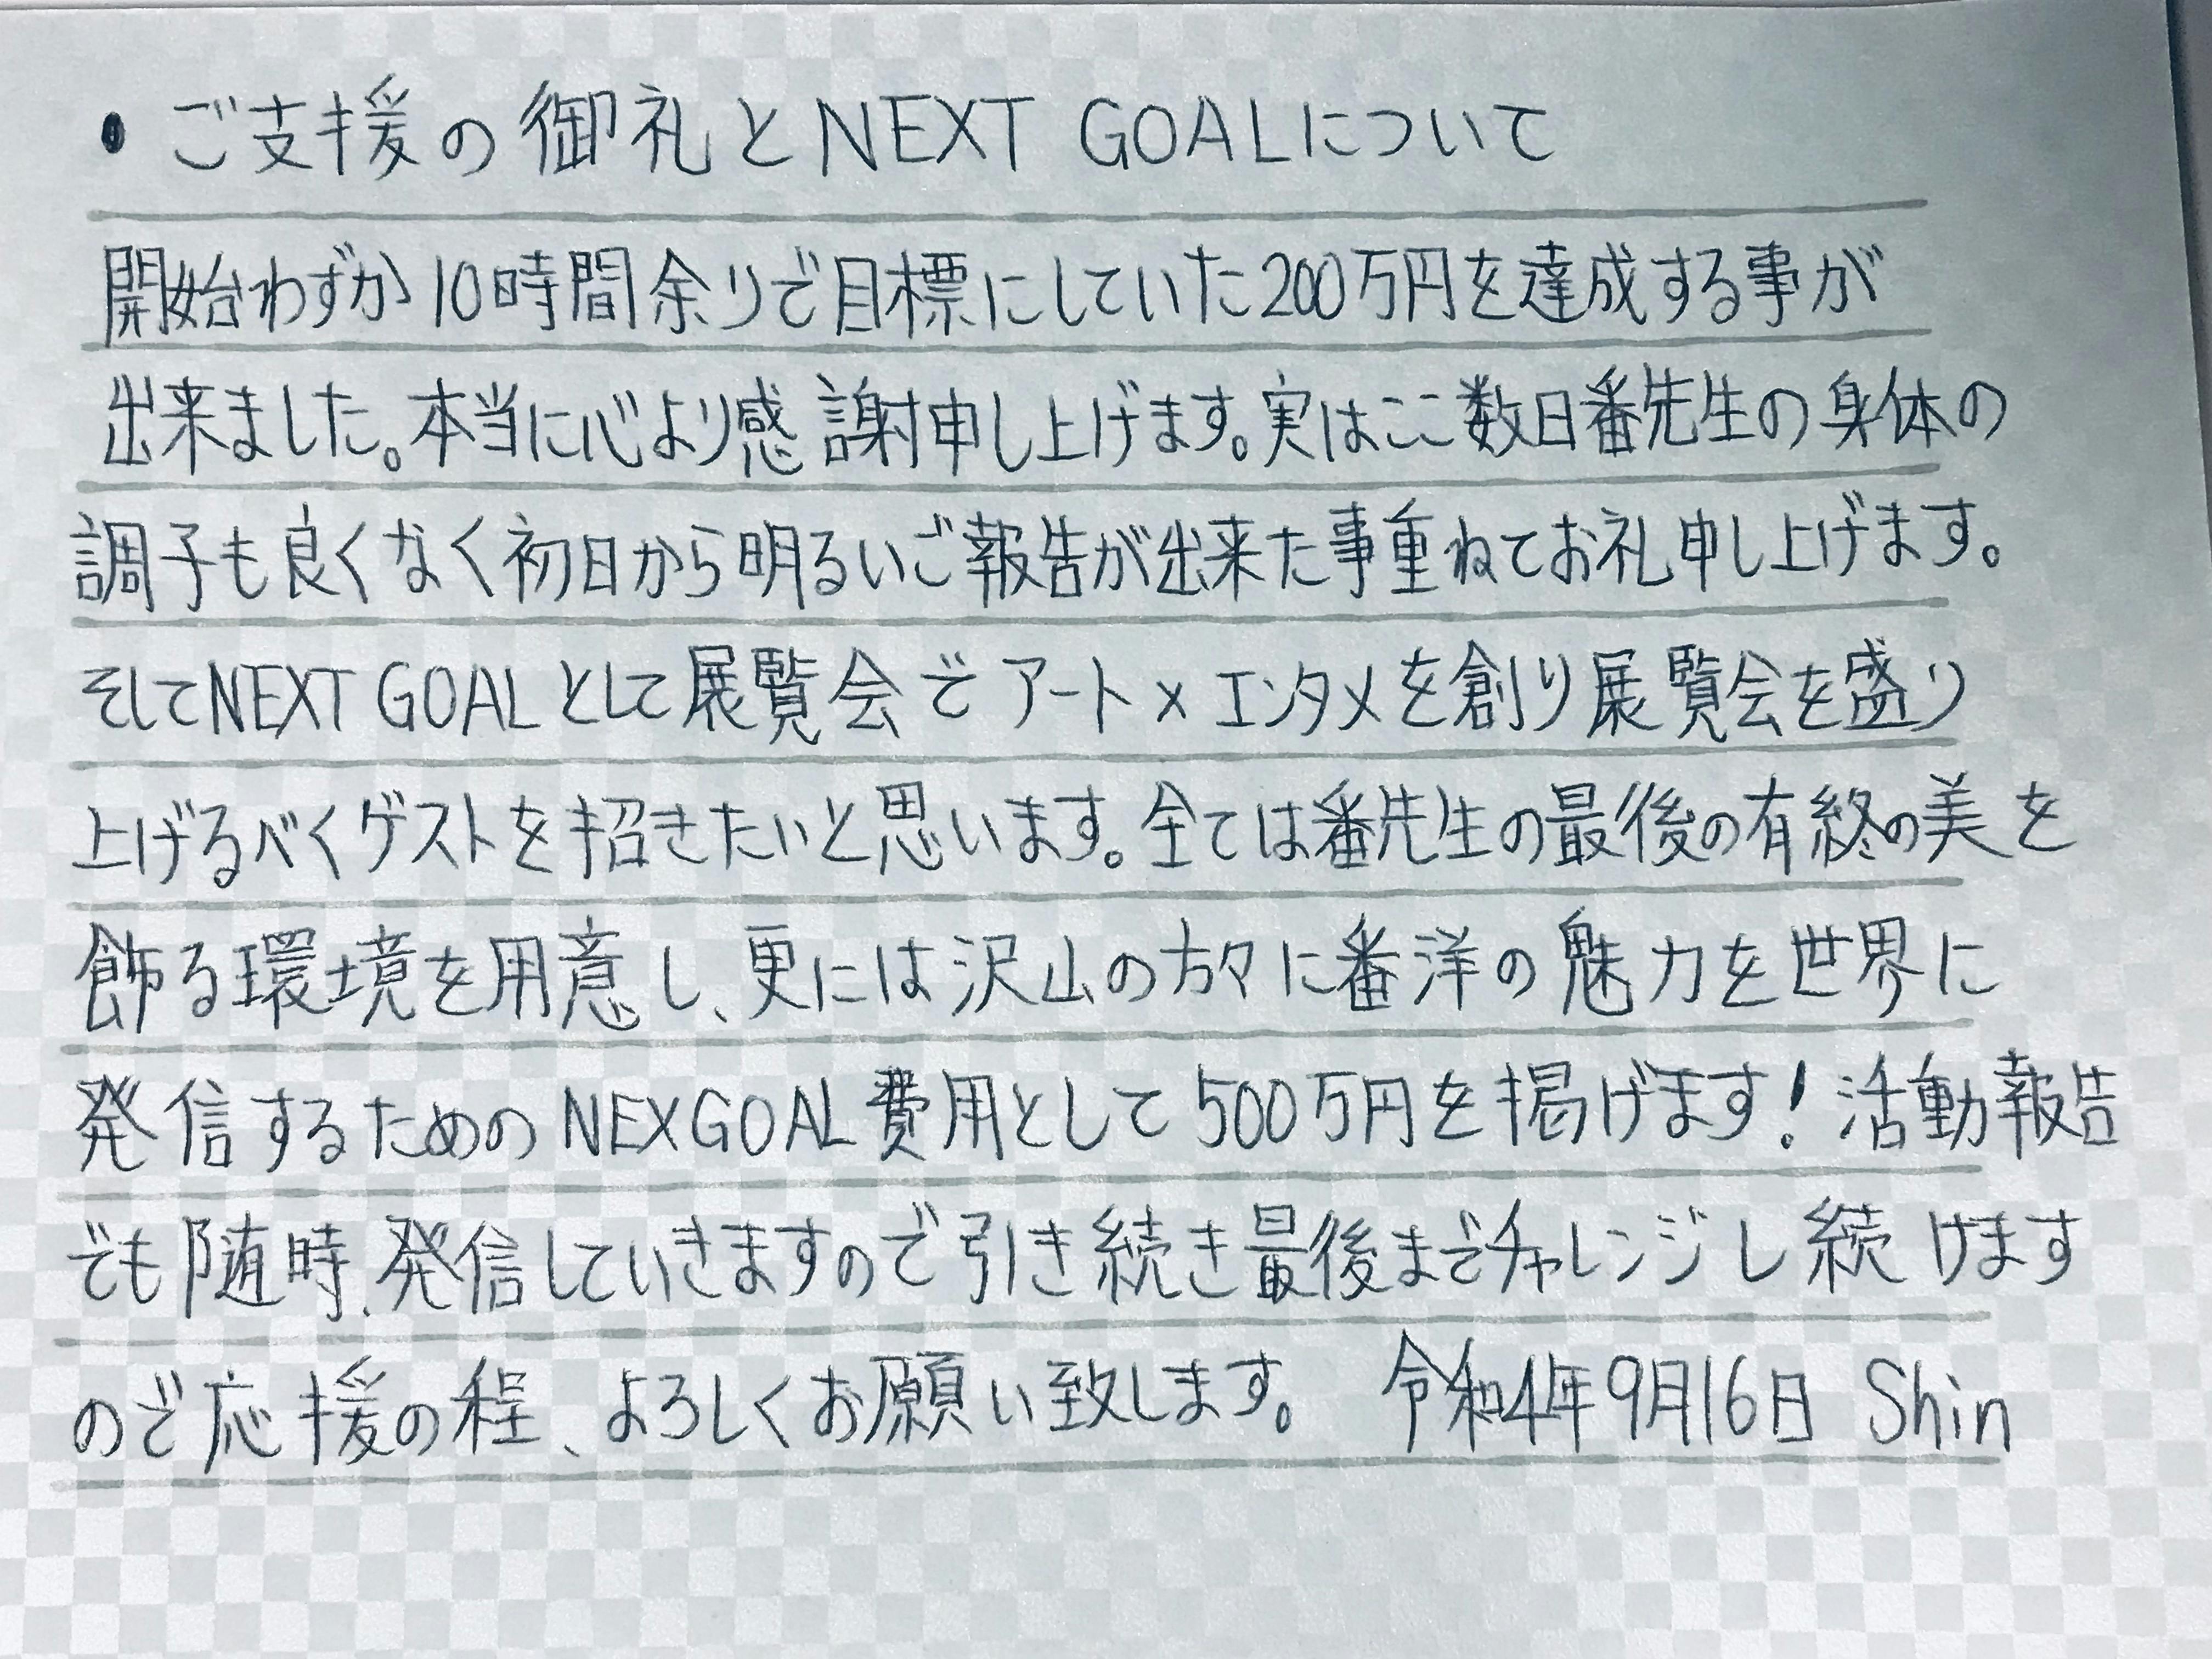 ・ご支援の御礼とNEXT GOALについて
開始わずか10時間余りで目標にしていた200万円を達成する事が
出来ました。本当に心より感謝申し上げます。実はここ数日番先生の身体の
調子も良くなく初日から明るいご報告が出来た事重ねてお礼申し上げます。
そしてNEXT GOALとして展覧会でアート×エンタメを創り展覧会を盛り
上げるべくゲストを招きたいと思います。全ては番先生の最後の有終の美を
飾る環境を用意し、更には沢山の方々に番洋の魅力を世界に
発信するためのNEXGOAL費用として500万円を掲げます!活動報告
でも随時、発信していきますので引き続き最後までチャレンジし続けます
ので応援の程、よろしくお願い致します。 令和4年9月16日 Shin